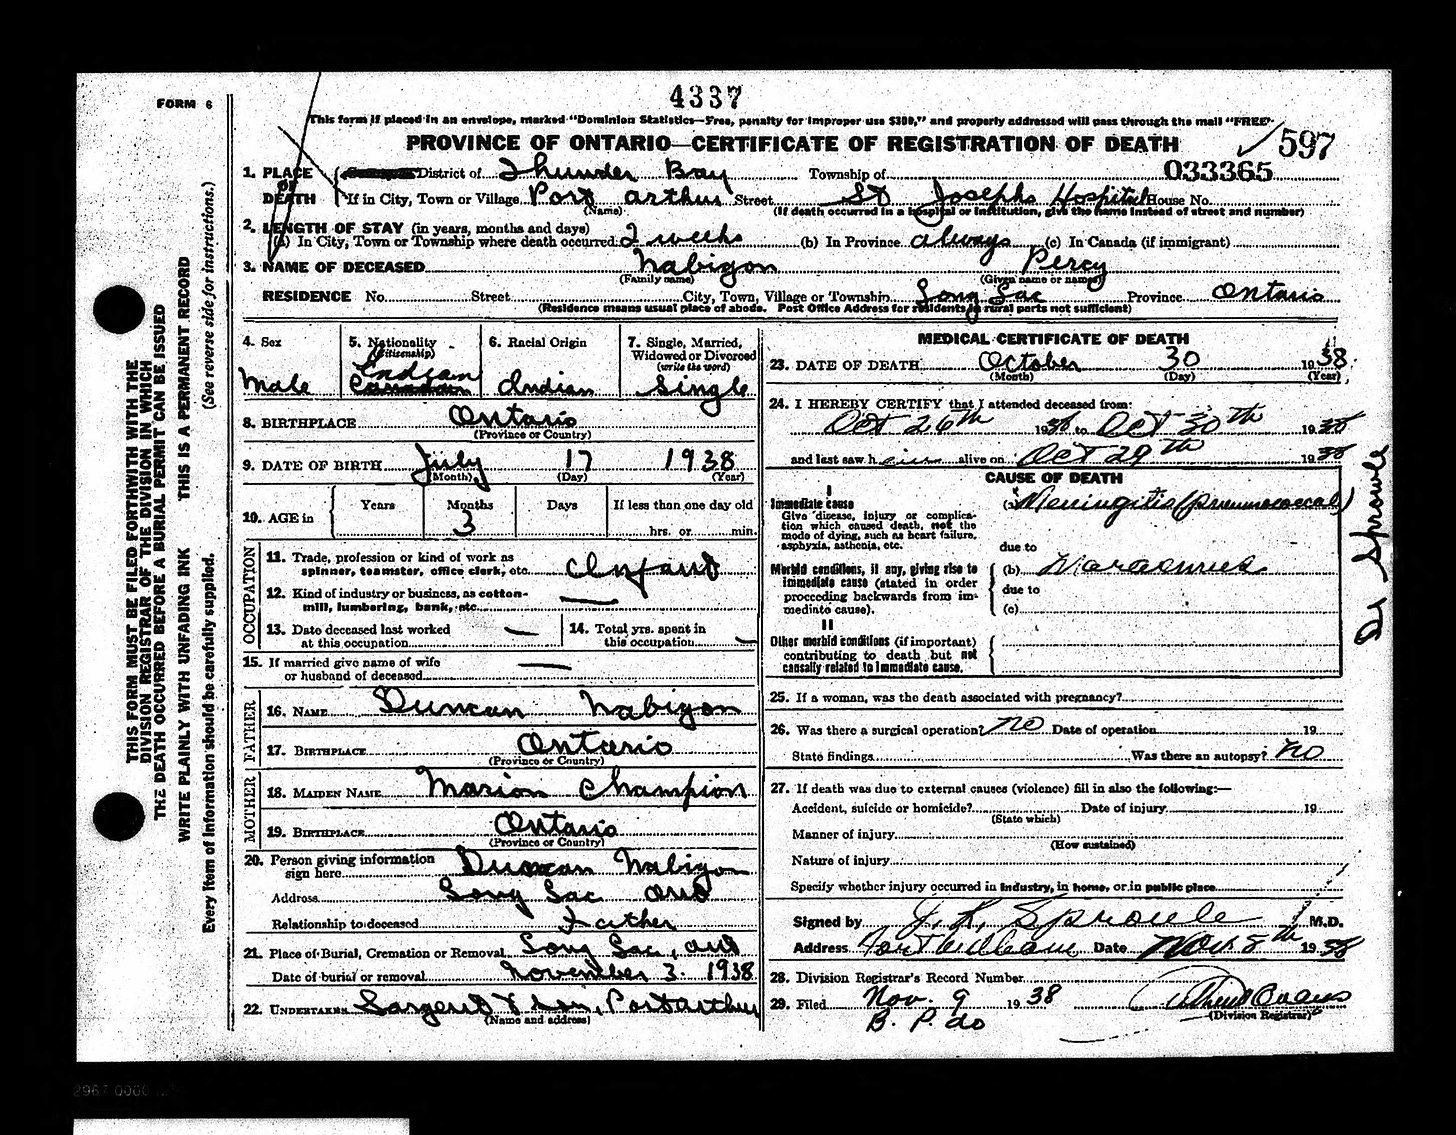 4337
FORM 6
This form if placed in an envelope, marked "Dominion Statistics—Free, penalty for improper use $300," and properly addressed will pass through the mail "FREE"
597
PROVINCE OF ONTARIO—CERTIFICATE OF REGISTRATION OF DEATH
033365
1. PLACE OF DEATH District of Thunder Bay Township of
If in City, Town or Village Port Arthur Street St Josephs Hospital House No.
(Name) (If death occurred in a hospital or institution, give the name instead of street and number)
2. LENGTH OF STAY (in years, months and days)
(a) In City, Town or Township where death occurred 2 weeks (b) In Province always (c) In Canada (if immigrant)
3. NAME OF DECEASED Nabigon Percy
(Family name) (Given name or names)
RESIDENCE No. Street City, Town, Village or Township Long Lac Province Ontario
(Residence means usual place of abode. Post Office Address for residents in rural parts not sufficient)
4. Sex
Male
5. Nationality
(Citizenship)
Indian
Canadian
6. Racial Origin
Indian
7. Single, Married, Widowed or Divorced
(write the word)
Single
8. BIRTHPLACE Ontario
(Province or Country)
9. DATE OF BIRTH July 17 1938
(Month) (Day) (Year)
10. AGE in Years Months Days If less than one day old
3 hrs. or min.
OCCUPATION
11. Trade, profession or kind of work as
spinner, teamster, office clerk, etc. Infant
12. Kind of industry or business, as cotton-
mill, lumbering, bank, etc. —
13. Date deceased last worked
at this occupation —
14. Total yrs. spent in
this occupation —
15. If married give name of wife
or husband of deceased —
FATHER
16. NAME Duncan Nabigon
17. BIRTHPLACE Ontario
(Province or Country)
MOTHER
18. MAIDEN NAME Marion Champion
19. BIRTHPLACE Ontario
(Province or Country)
20. Person giving information
sign here Duncan Nabigon
Address Long Lac Ont
Relationship to deceased Father
21. Place of Burial, Cremation or Removal Long Lac, Ont
Date of burial or removal November 3. 1938
22. UNDERTAKER Sargent & Son, Port Arthur
(Name and address)
MEDICAL CERTIFICATE OF DEATH
23. DATE OF DEATH October 30 1938
(Month) (Day) (Year)
24. I HEREBY CERTIFY that I attended deceased from:
Oct 26th 1938 to Oct 30th 1938
and last saw him alive on Oct 29th 1938
CAUSE OF DEATH
I
Immediate cause (a) Meningitis (pneumococcal)
Give disease, injury or complica-
tion which caused death, not the
mode of dying, such as heart failure,
asphyxia, asthenia, etc.
due to
Morbid conditions, if any, giving rise to
immediate cause (stated in order
proceeding backwards from im-
mediate cause).
(b) Marasmus
due to
(c)
II
Other morbid conditions (if important)
contributing to death but not
causally related to immediate cause.
Dr Sproule
25. If a woman, was the death associated with pregnancy?
26. Was there a surgical operation? no Date of operation 19
State findings Was there an autopsy? no
27. If death was due to external causes (violence) fill in also the following:—
Accident, suicide or homicide? Date of injury 19
(State which)
Manner of injury
(How sustained)
Nature of injury
Specify whether injury occurred in industry, in home, or in public place
Signed by J. K. Sproule M.D.
Address Fort William Date Nov 8th 1938
28. Division Registrar's Record Number
29. Filed Nov. 9 1938
(Division Registrar)
B. P. do
THIS FORM MUST BE FILED FORTHWITH WITH THE
DIVISION REGISTRAR OF THE DIVISION IN WHICH
THE DEATH OCCURRED BEFORE A BURIAL PERMIT CAN BE ISSUED
WRITE PLAINLY WITH UNFADING INK THIS IS A PERMANENT RECORD
Every item of information should be carefully supplied. (See reverse side for instructions.)